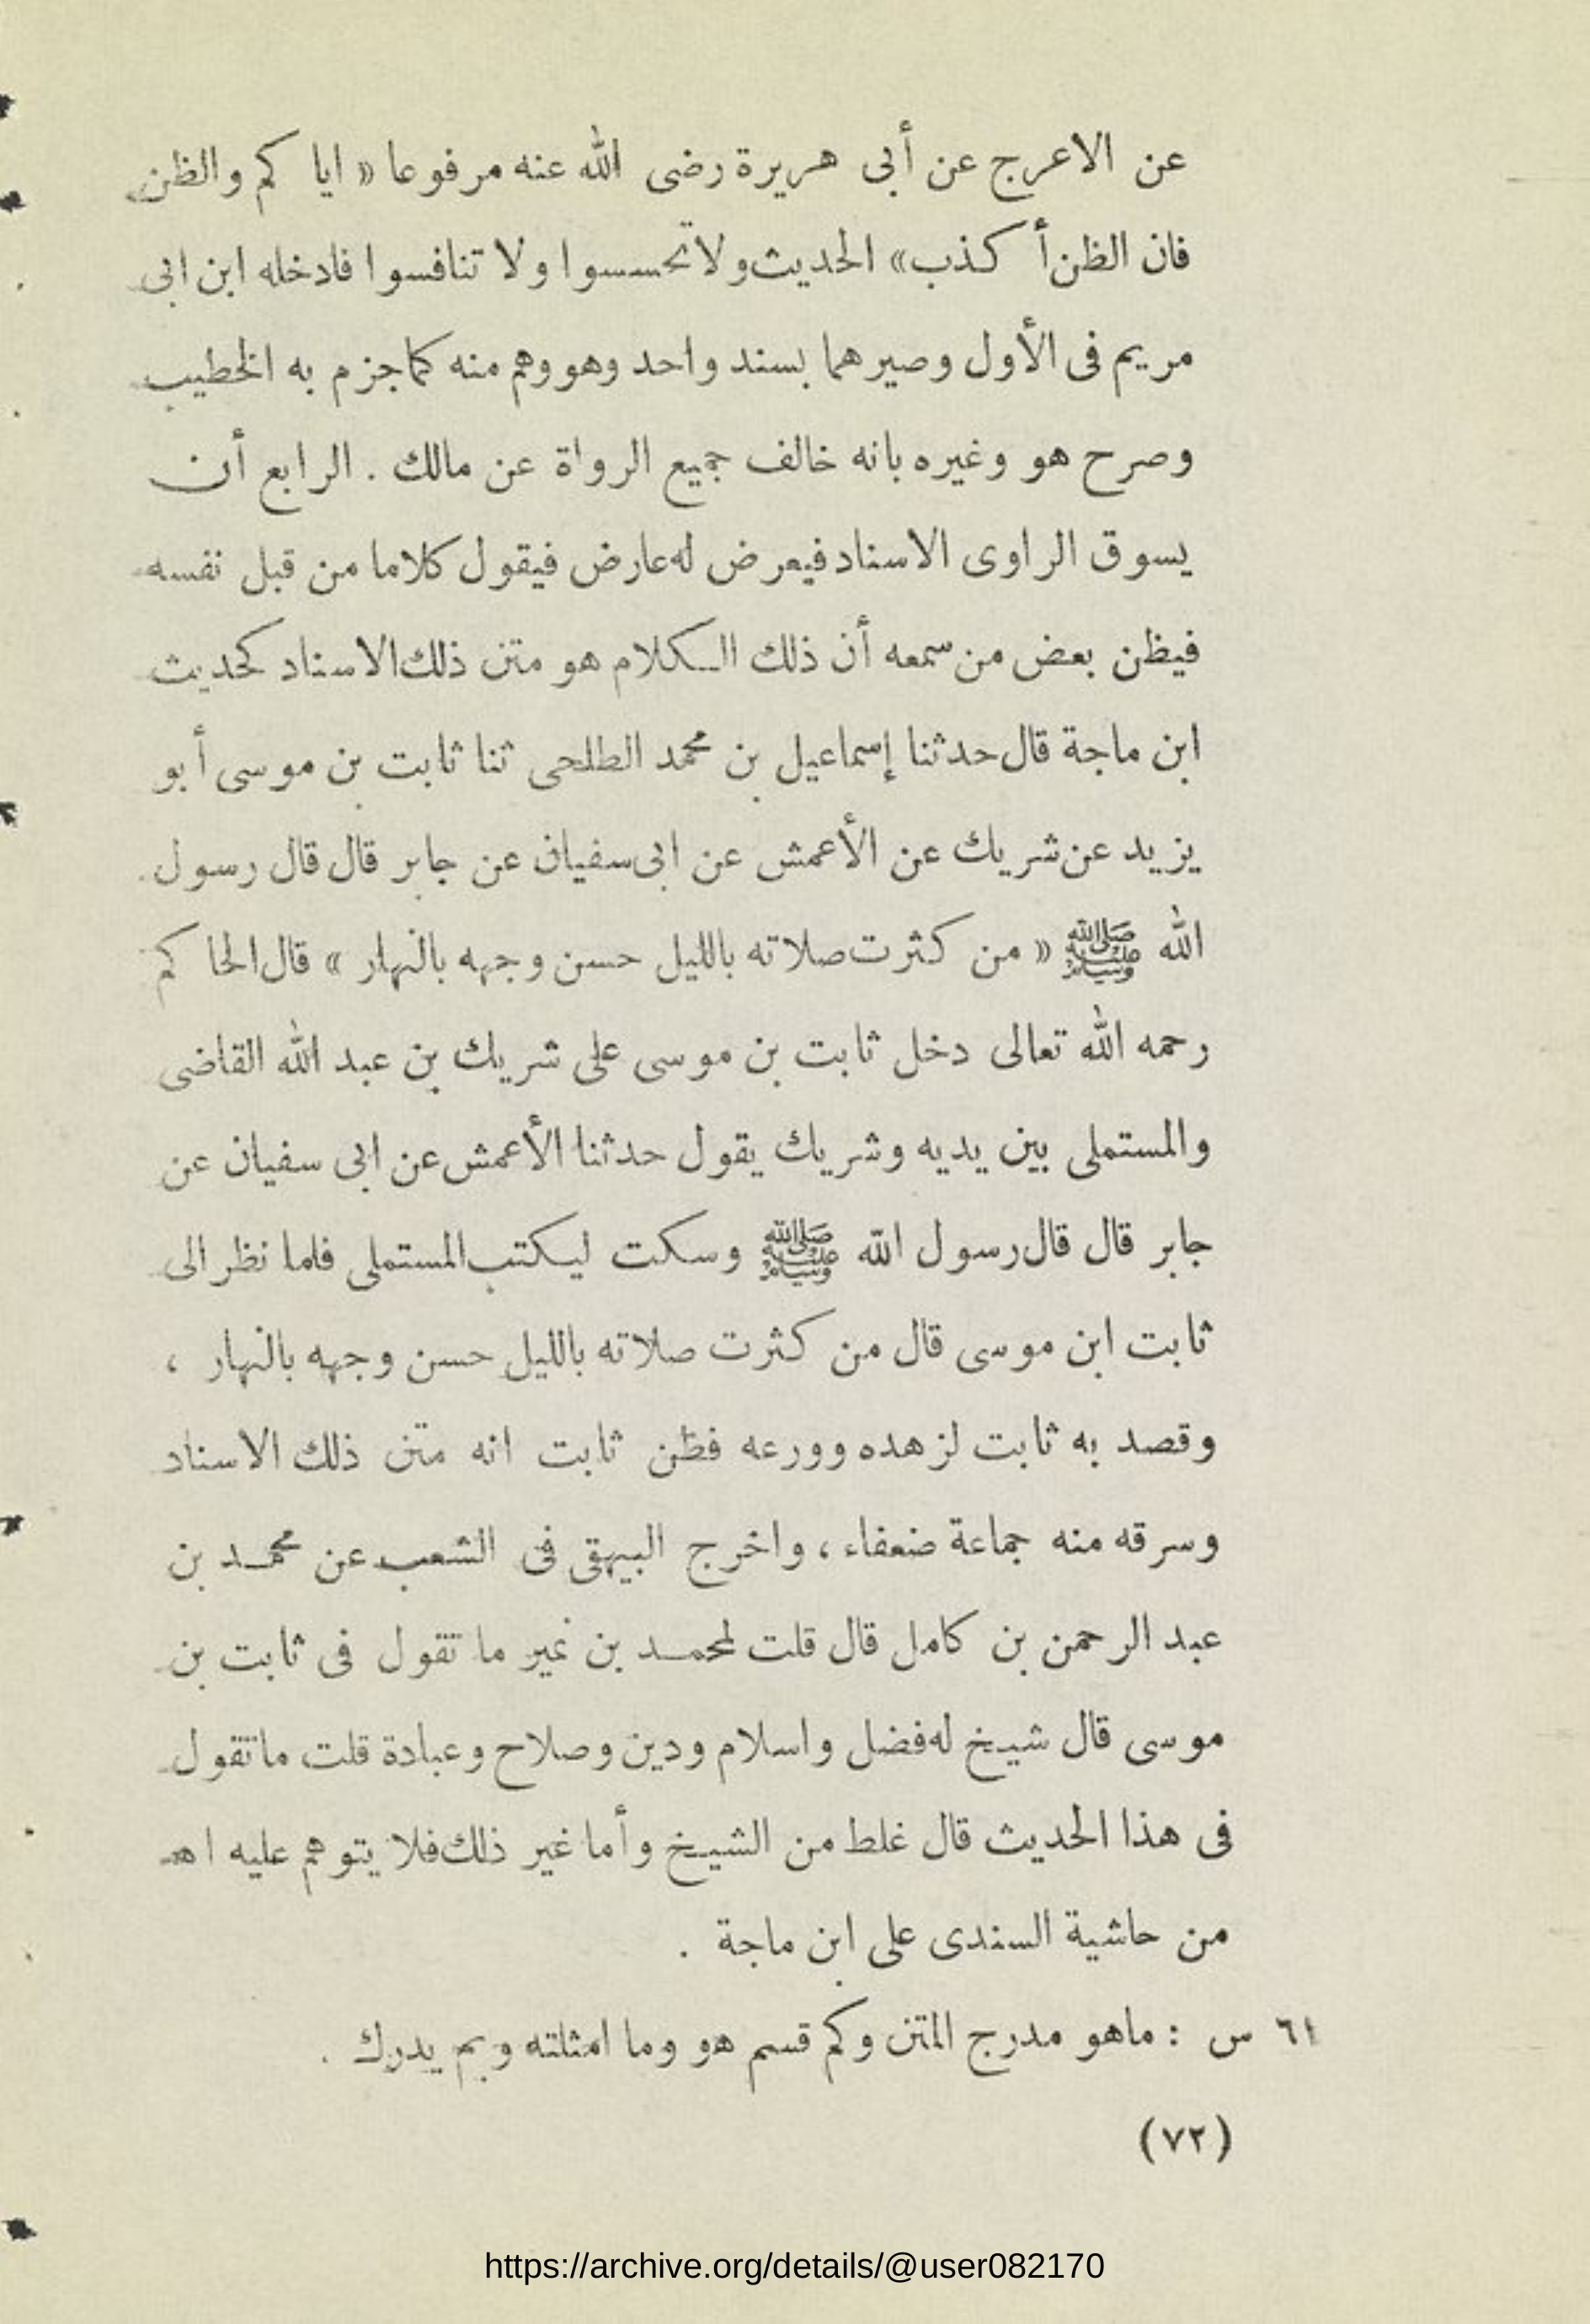 عن الاعرج عن أبى هريرة رضى الله عنه مرفوعا « ايا كم والظن
فان الظن أ كذب» الحديث ولا تحسسوا ولا تنافسوا فادخله ابن ابى
مريم فى الأول وصيرهما بسند واحد وهو وهم منه كما جزم به الخطيب
وصرح هو وغيره بانه خالف جميع الرواة عن مالك . الرابع أن
يسوق الراوى الاسناد فيعرض له عارض فيقول كلاما من قبل نفسه
فيظن بعض من سمعه أن ذلك الكلام هو متن ذلك الاسناد كحديث
ابن ماجة قال حدثنا إسماعيل بن محمد الطلحى ثنا ثابت بن موسى أبو
يزيد عن شريك عن الأعمش عن ابى سفيان عن جابر قال قال رسول
الله ﷺ « من كثرت صلاته بالليل حسن وجهه بالنهار » قال الحا كم
رحمه الله تعالى دخل ثابت بن موسى على شريك بن عبد الله القاضى
والمستملى بين يديه وشريك يقول حدثنا الأعمش عن ابى سفيان عن
جابر قال قال رسول الله ﷺ وسكت ليكتب المستملى فلما نظر الى
ثابت ابن موسى قال من كثرت صلاته بالليل حسن وجهه بالنهار ،
وقصد به ثابت لزهده وورعه فظن ثابت انه متن ذلك الاسناد
وسرقه منه جماعة ضعفاء ، واخرج البيهقى فى الشعب عن محمد بن
عبد الرحمن بن كامل قال قلت لمحمد بن نمير ما تقول فى ثابت بن
موسى قال شيخ له فضل واسلام ودين وصلاح وعبادة قلت ما تقول
فى هذا الحديث قال غلط من الشيخ وأما غير ذلك فلا يتوهم عليه اهـ
من حاشية السندى على ابن ماجة .
٦١ س : ماهو مدرج المتن وكم قسم هو وما امثلته وبم يدرك .
(٧٢)
https://archive.org/details/@user082170